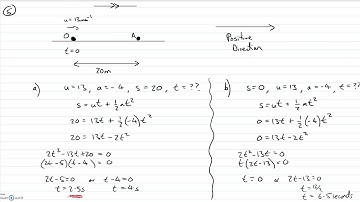 5
u = 13ms⁻¹
O
A
t=0
20m
Positive
Direction
a) u=13, a=-4, s=20, t=??
s=ut+½at²
20=13t+½(-4)t²
20=13t-2t²
2t²-13t+20=0
(2t-5)(t-4)=0
2t-5=0 or t-4=0
t=2.5s t=4s
b) s=0, u=13, a=-4, t=??
s=ut+½at²
0=13t+½(-4)t²
0=13t-2t²
2t²-13t=0
t(2t-13)=0
t=0 or 2t-13=0
t=13/2
t=6.5 seconds